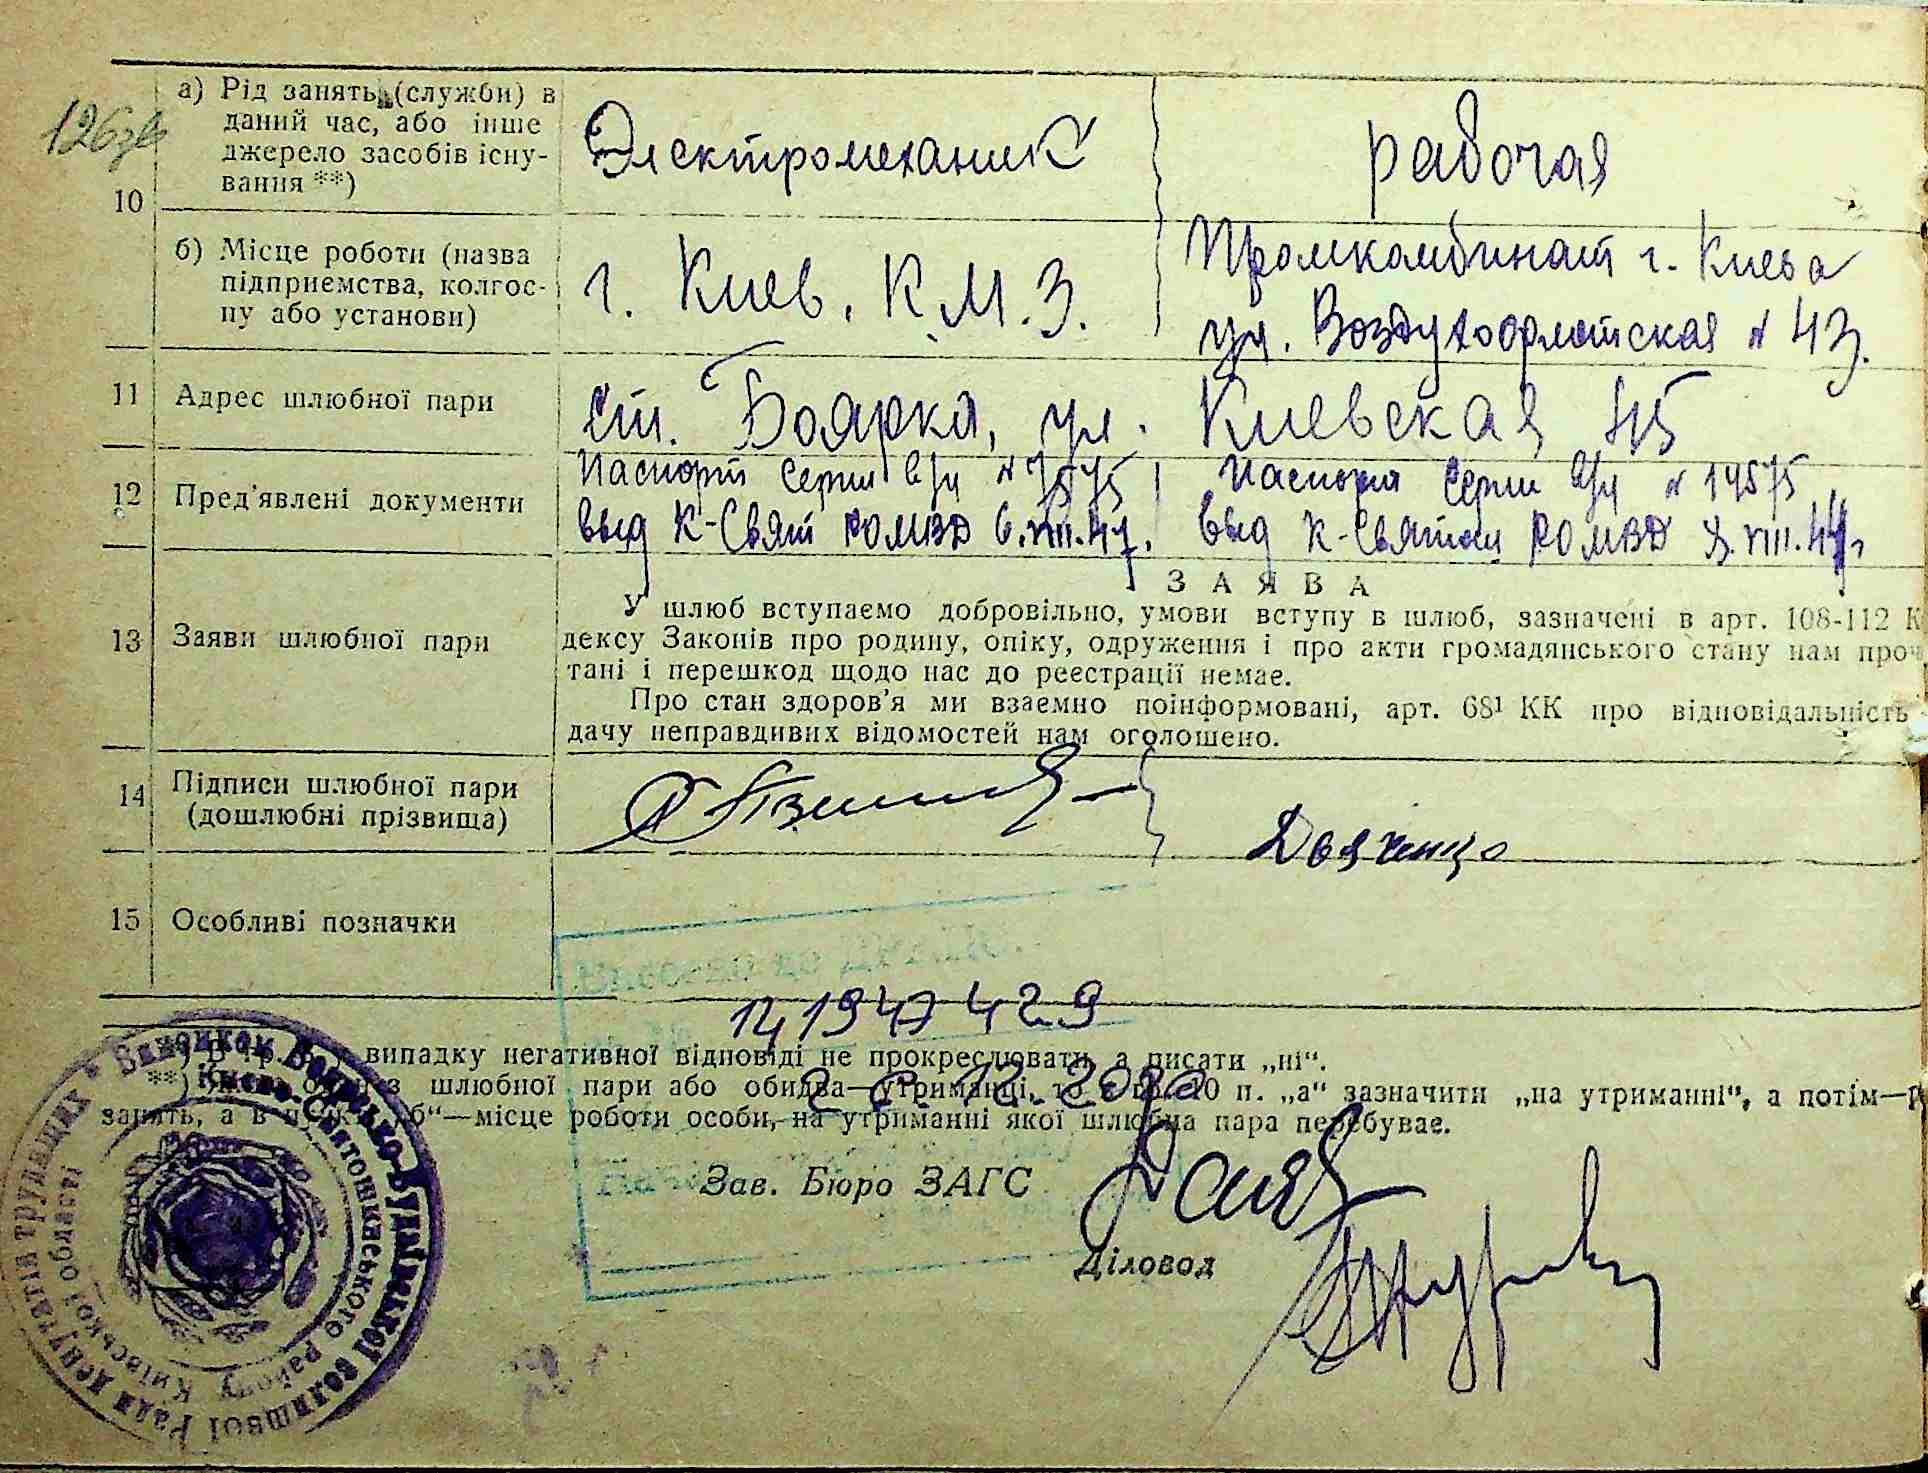 126зв
а) Рід занять (служби) в
даний час, або інше
джерело засобів існу-
вання **)
10
Электромеханик
рабочая
б) Місце роботи (назва
підприємства, колгос-
пу або установи)
г. Киев. К.М.З.
Промкомбинат г. Киева
ул. Воздухофлотская № 43.
11
Адрес шлюбної пари
ст. Боярка, ул. Киевская
12
Пред'явлені документи
Паспорт серии
выд К-Свят РОМВД 6.VIII.47.
Паспорт серии № 14575
выд К-Святош РОМВД
13
Заяви шлюбної пари
ЗАЯВА
У шлюб вступаємо добровільно, умови вступу в шлюб, зазначені в арт. 108-112 К
дексу Законів про родину, опіку, одруження і про акти громадянського стану нам проч
тані і перешкод щодо нас до реєстрації немає.
Про стан здоров'я ми взаємно поінформовані, арт. 68¹ КК про відповідальність
дачу неправдивих відомостей нам оголошено.
14
Підписи шлюбної пари
(дошлюбні прізвища)
15
Особливі позначки
випадку негативної відповіді не прокреслювати, а писати „ні“.
**) шлюбної пари або обидва—утриманці, п. „а“ зазначити „на утриманні“, а потім—р
занять, а в „б“—місце роботи особи, на утриманні якої шлюбна пара перебуває.
Зав. Бюро ЗАГС
Діловод
Виконком Боярсько-Будаївської селищної Ради депутатів трудящих
Києво-Святошинського району Київської області